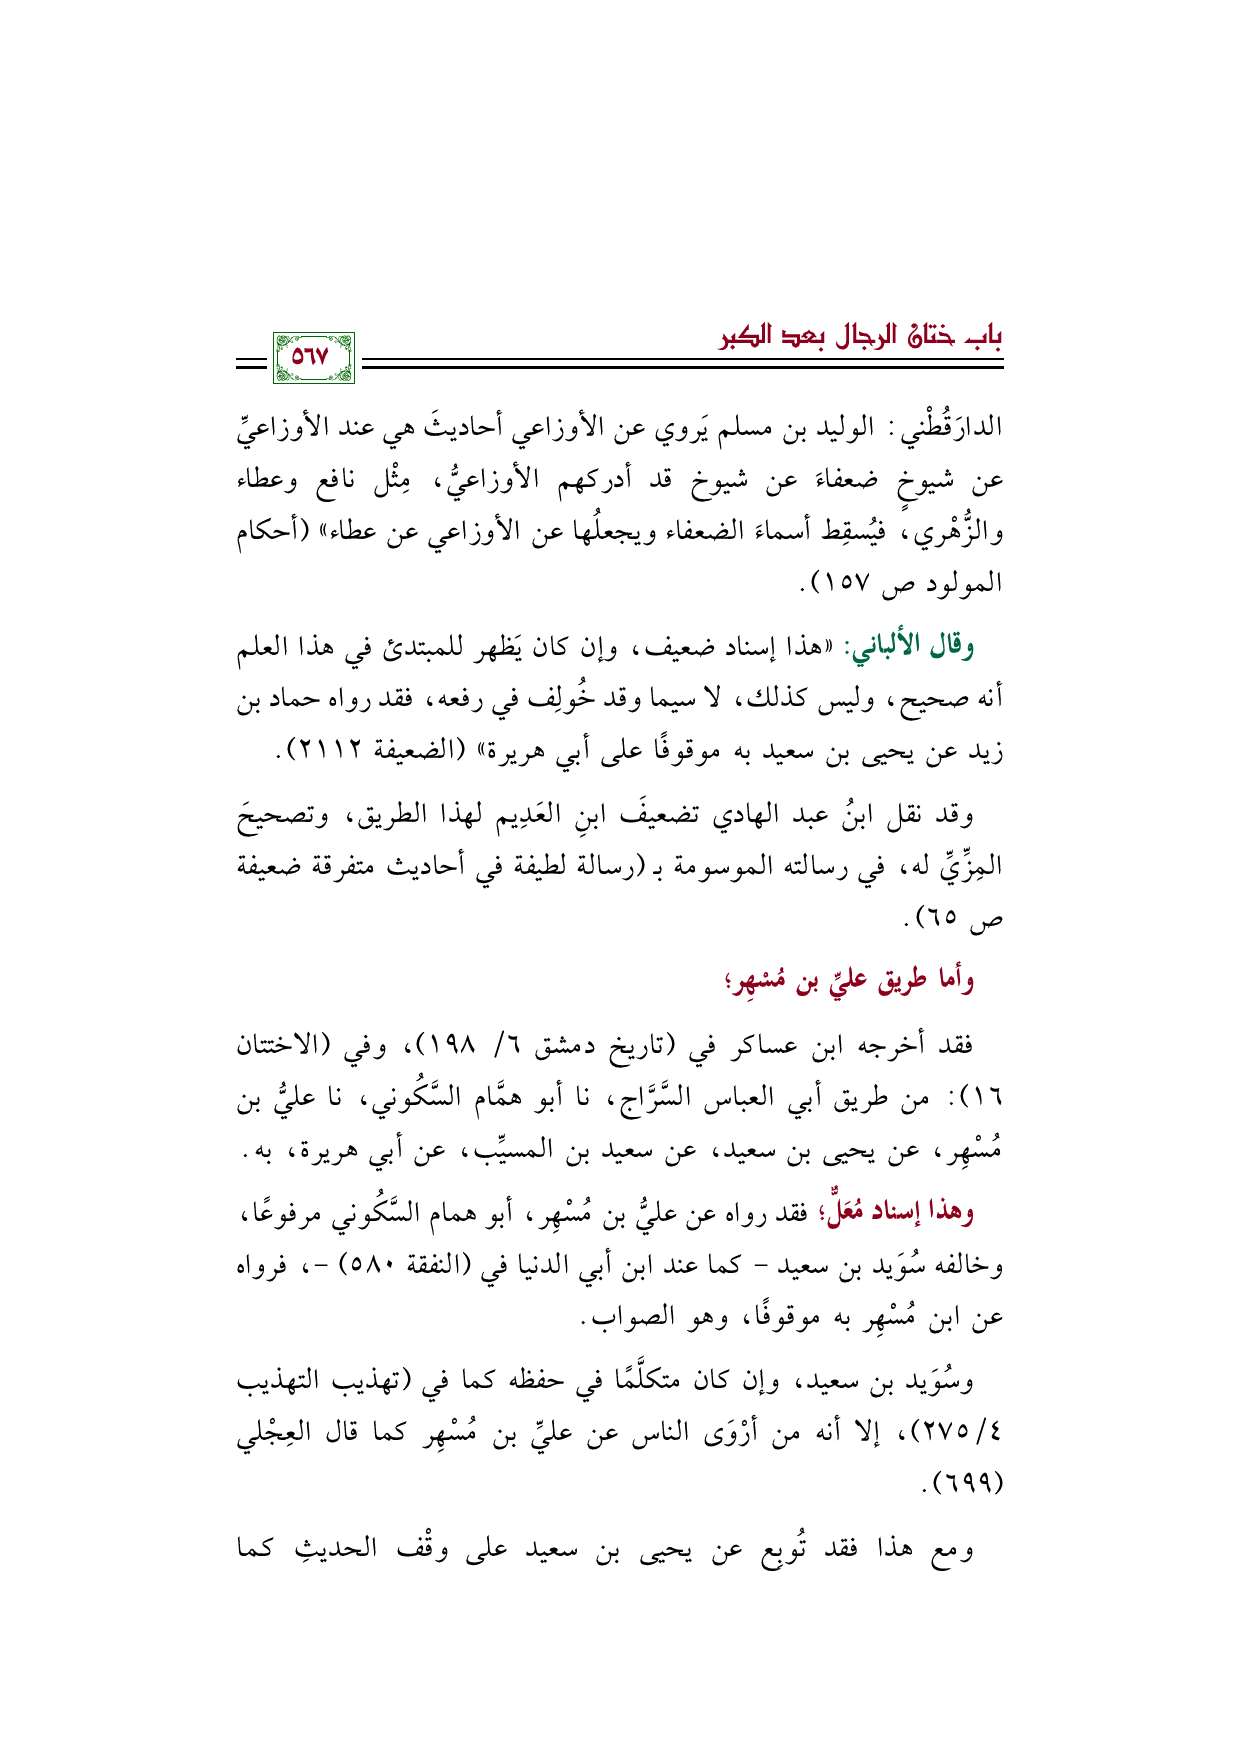 باب ختان الرجال بعد الكبر
٥٦٧
الدارَقُطْني: الوليد بن مسلم يَروي عن الأوزاعي أحاديثَ هي عند الأوزاعيِّ
عن شيوخٍ ضعفاءَ عن شيوخ قد أدركهم الأوزاعيُّ، مِثْل نافع وعطاء
والزُّهْري، فيُسقِط أسماءَ الضعفاء ويجعلُها عن الأوزاعي عن عطاء» (أحكام
المولود ص ١٥٧).
وقال الألباني: «هذا إسناد ضعيف، وإن كان يَظهر للمبتدئ في هذا العلم
أنه صحيح، وليس كذلك، لا سيما وقد خُولِف في رفعه، فقد رواه حماد بن
زيد عن يحيى بن سعيد به موقوفًا على أبي هريرة» (الضعيفة ٢١١٢).
وقد نقل ابنُ عبد الهادي تضعيفَ ابنِ العَدِيم لهذا الطريق، وتصحيحَ
المِزِّيِّ له، في رسالته الموسومة بـ (رسالة لطيفة في أحاديث متفرقة ضعيفة
ص ٦٥).
وأما طريق عليِّ بن مُسْهِر؛
فقد أخرجه ابن عساكر في (تاريخ دمشق ٦/ ١٩٨)، وفي (الاختتان
١٦): من طريق أبي العباس السَّرَّاج، نا أبو همَّام السَّكُوني، نا عليُّ بن
مُسْهِر، عن يحيى بن سعيد، عن سعيد بن المسيِّب، عن أبي هريرة، به.
وهذا إسناد مُعَلٌّ؛ فقد رواه عن عليُّ بن مُسْهِر، أبو همام السَّكُوني مرفوعًا،
وخالفه سُوَيد بن سعيد – كما عند ابن أبي الدنيا في (النفقة ٥٨٠) –، فرواه
عن ابن مُسْهِر به موقوفًا، وهو الصواب.
وسُوَيد بن سعيد، وإن كان متكلَّمًا في حفظه كما في (تهذيب التهذيب
٤/ ٢٧٥)، إلا أنه من أرْوَى الناس عن عليِّ بن مُسْهِر كما قال العِجْلي
(٦٩٩).
ومع هذا فقد تُوبِع عن يحيى بن سعيد على وقْف الحديثِ كما